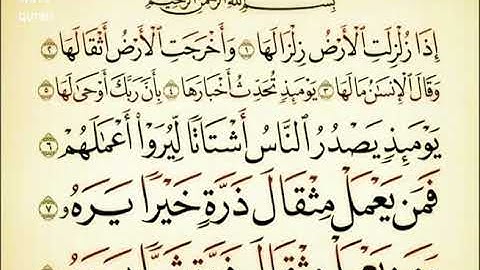 quran
بِسْمِ ٱللَّهِ ٱلرَّحْمَٰنِ ٱلرَّحِيمِ
إِذَا زُلْزِلَتِ ٱلْأَرْضُ زِلْزَالَهَا ١ وَأَخْرَجَتِ ٱلْأَرْضُ أَثْقَالَهَا ٢
وَقَالَ ٱلْإِنسَٰنُ مَا لَهَا ٣ يَوْمَئِذٍ تُحَدِّثُ أَخْبَارَهَا ٤ بِأَنَّ رَبَّكَ أَوْحَىٰ لَهَا ٥
يَوْمَئِذٍ يَصْدُرُ ٱلنَّاسُ أَشْتَاتًا لِّيُرَوْا۟ أَعْمَٰلَهُمْ ٦
فَمَن يَعْمَلْ مِثْقَالَ ذَرَّةٍ خَيْرًا يَرَهُۥ ٧